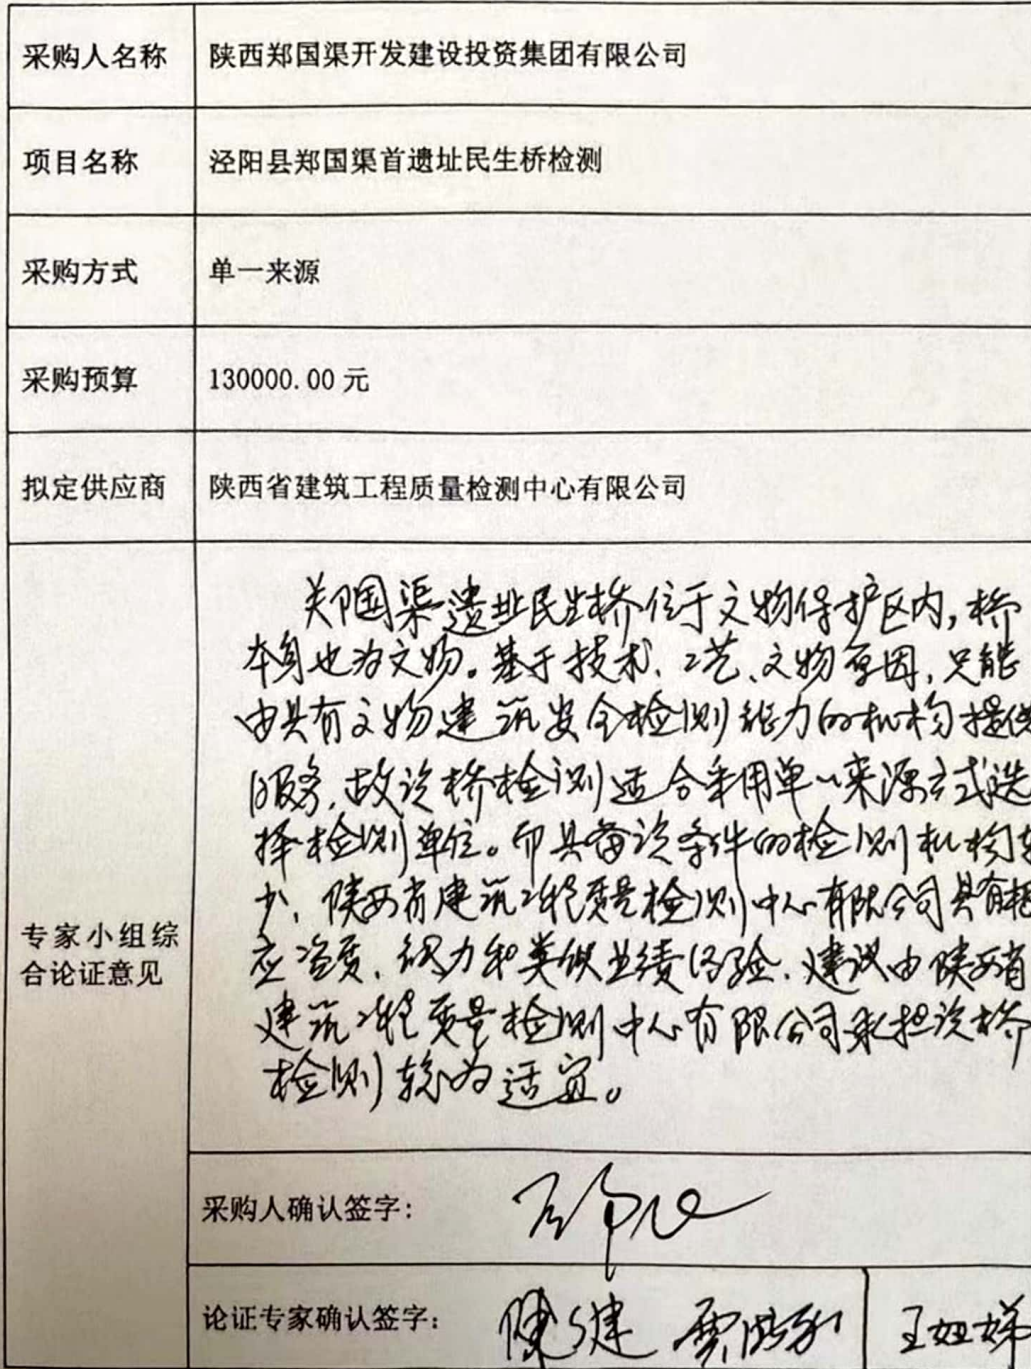 采购人名称 陕西郑国渠开发建设投资集团有限公司
项目名称 泾阳县郑国渠首遗址民生桥检测
采购方式 单一来源
采购预算 130000.00 元
拟定供应商 陕西省建筑工程质量检测中心有限公司
专家小组综
合论证意见
郑国渠遗址民生桥位于文物保护区内,桥
本身也为文物。基于技术、工艺、文物原因,只能
由具有文物建筑安全检测能力的机构提供
服务,故该桥检测适合采用单一来源方式选
择检测单位。而具备该条件的检测机构
少,陕西省建筑工程质量检测中心有限公司具有相
应资质、能力和类似业绩经验,建议由陕西省
建筑工程质量检测中心有限公司承担该桥
检测较为适宜。
采购人确认签字:
论证专家确认签字: 陈健 王妞娣